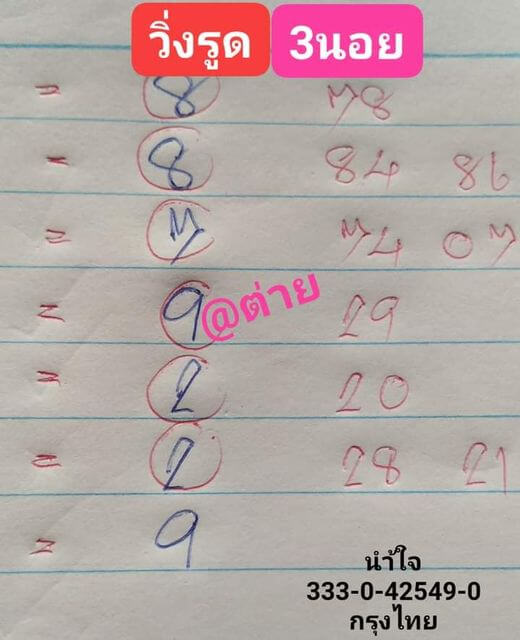 วิ่งรูด 3นอย
= 8 78
= 8 84 86
= 7 74 07
= 9 29
@ต่าย
= 2 20
= 2 28 21
= 9
นำ้ใจ
333-0-42549-0
กรุงไทย